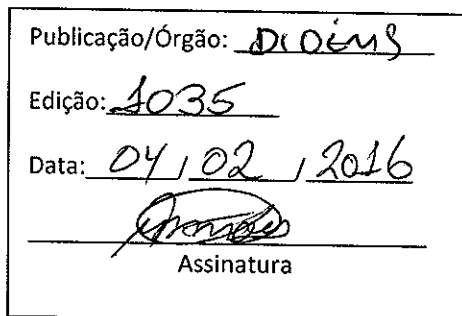 Publicação/Órgão: DIOEMS
Edição: 1035
Data: 04 / 02 / 2016
Assinatura